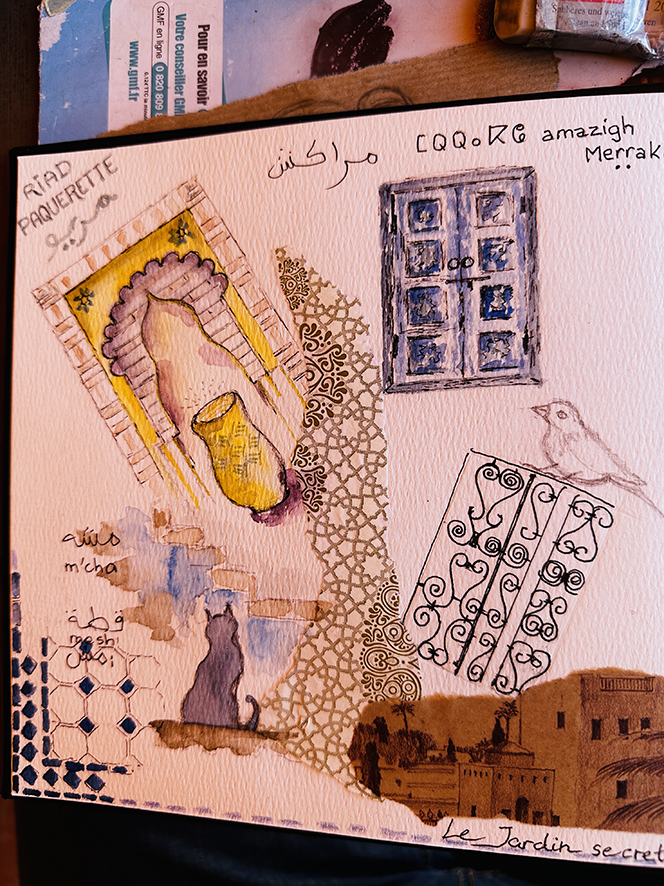 Pour en savoir
Votre conseiller GM
GMF en ligne 0 820 809 8
www.gmf.fr
RIAD
PAQUERETTE
مراكش ⵎⵕⵕⴰⴽⵛ amazigh
Merrak
مشه
m'cha
قطة
Le Jardin secret